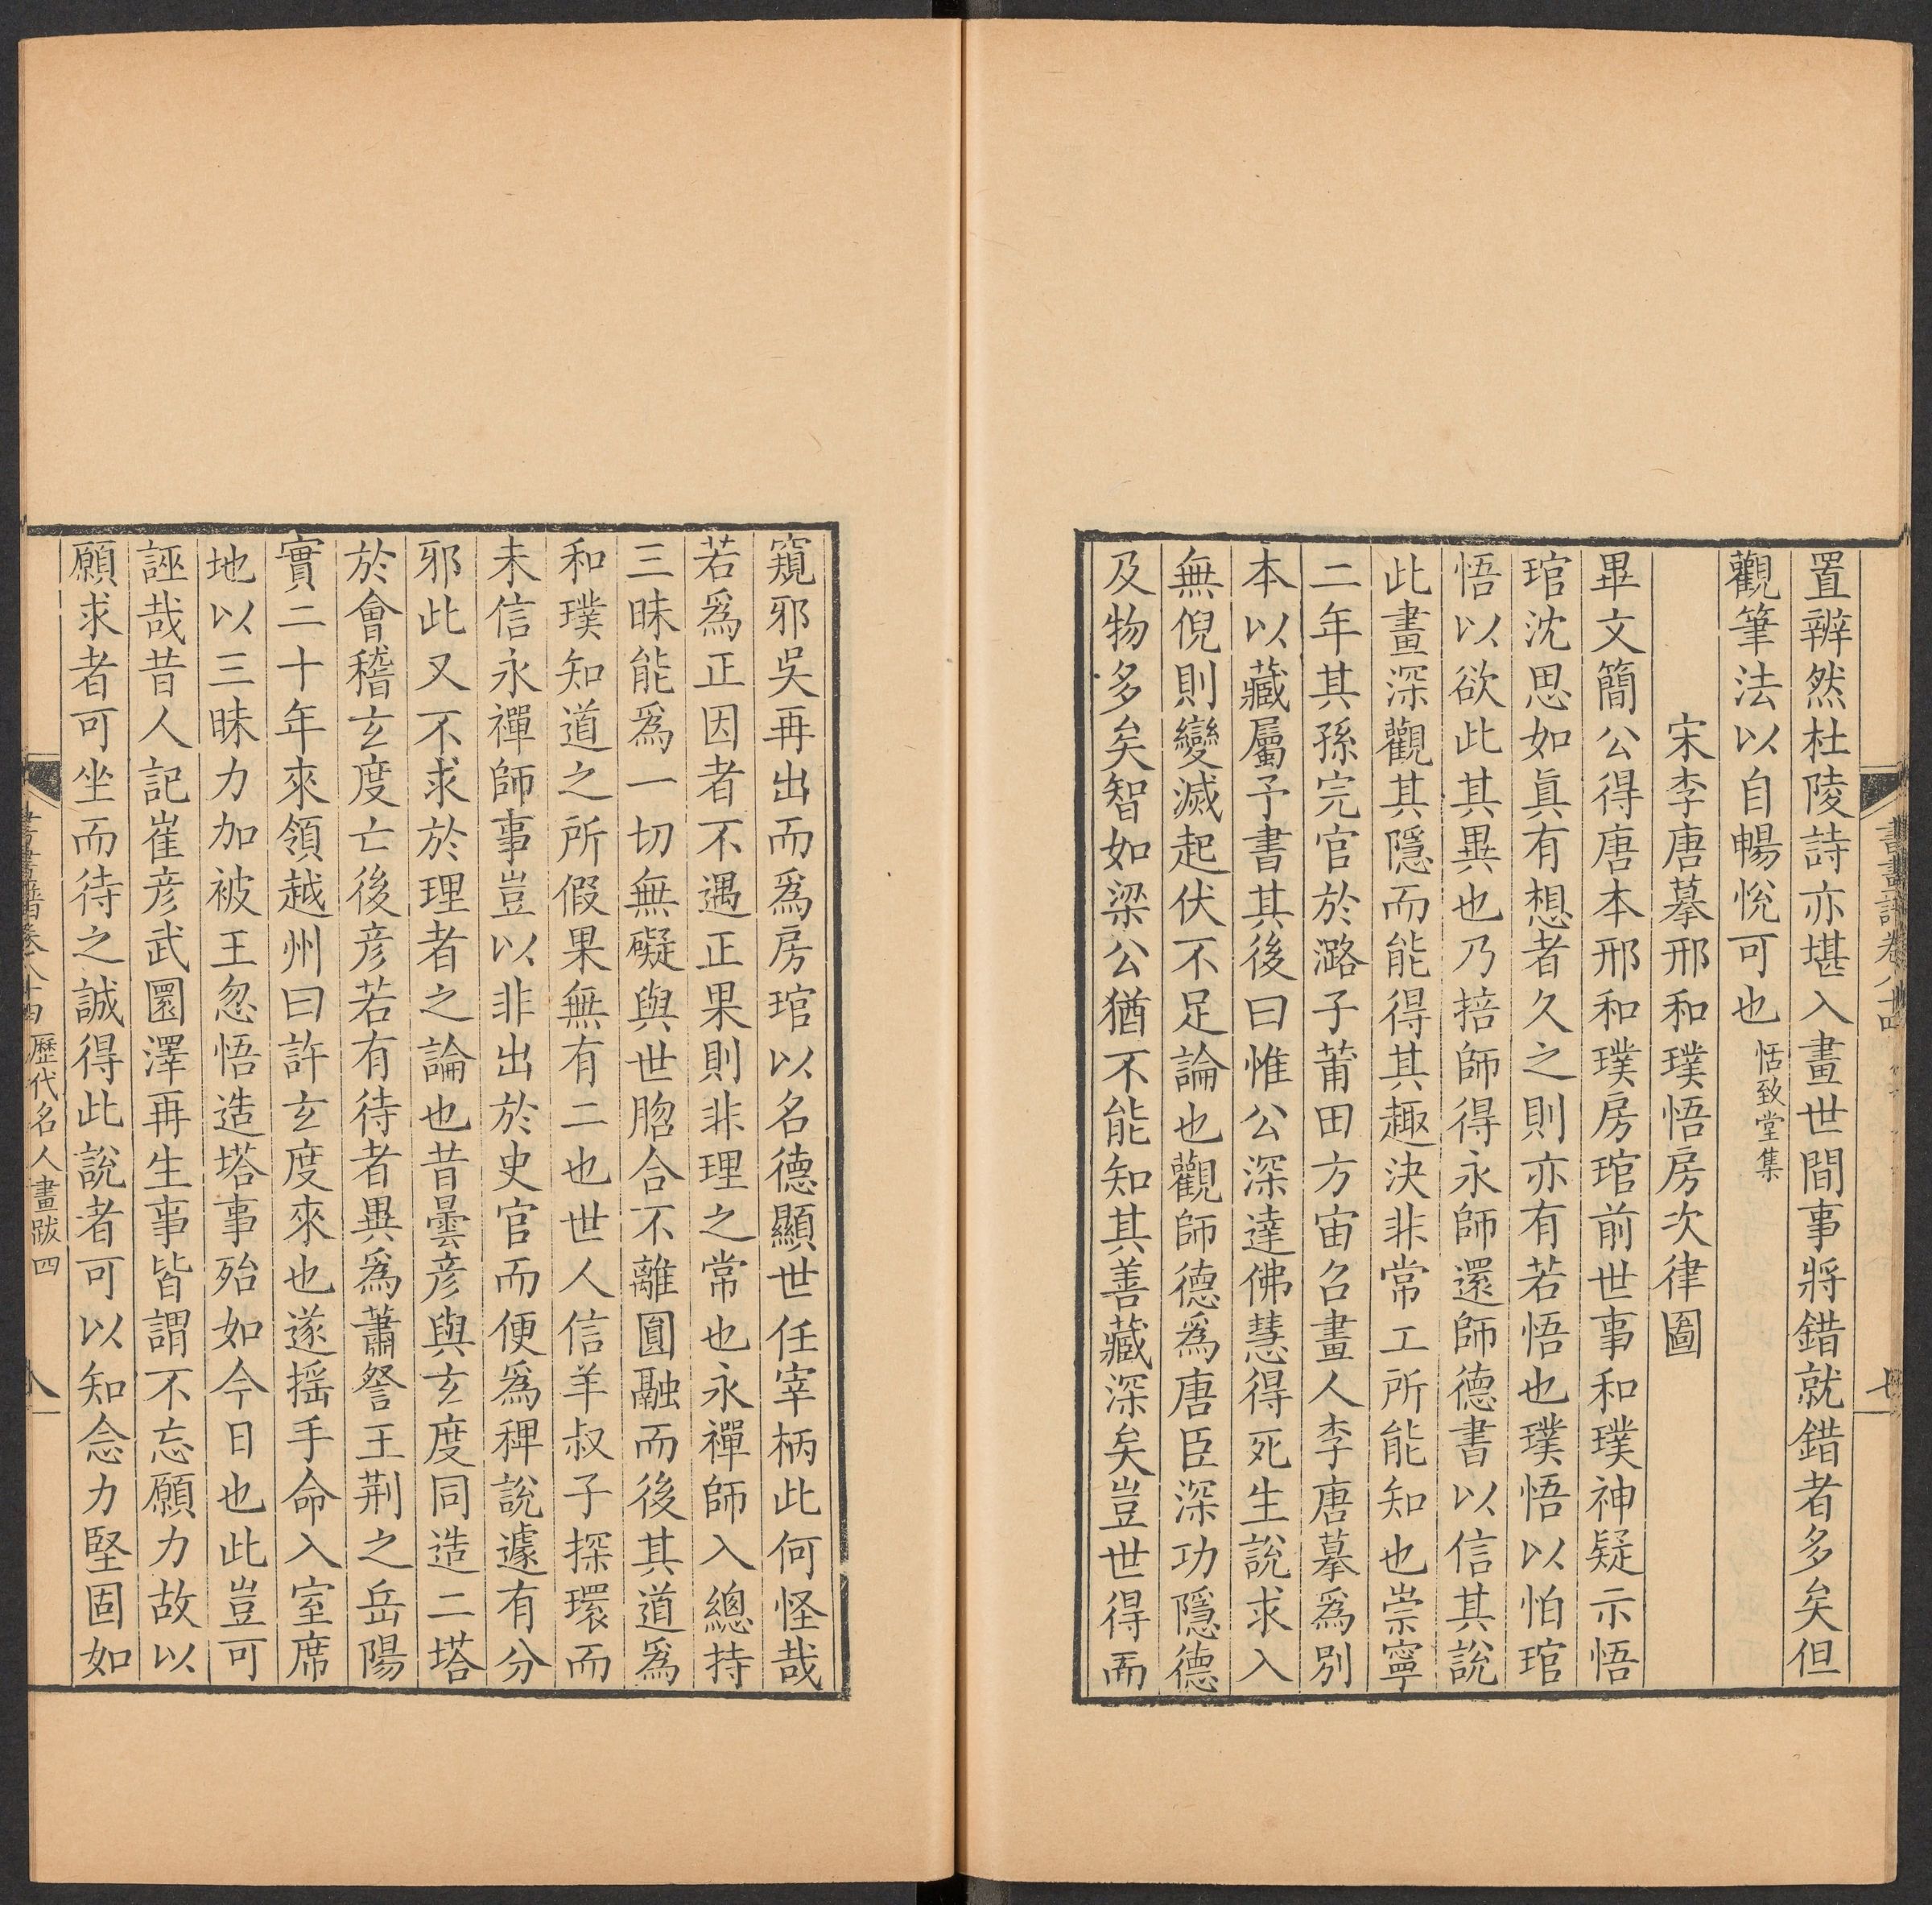 置辨然杜陵詩亦堪入畫世間事將錯就錯者多矣但
觀筆法以自暢悅可也恬致堂集
宋李唐摹邢和璞悟房次律圖
畢文簡公得唐本邢和璞房琯前世事和璞神疑示悟
琯沈思如眞有想者久之則亦有若悟也璞悟以怕琯
悟以欲此其異也乃掊師得永師還師德書以信其說
此畫深觀其隱而能得其趣決非常工所能知也崇寧
二年其孫完官於潞子莆田方宙召畫人李唐摹爲別
本以藏屬予書其後曰惟公深達佛慧得死生說求入
無倪則變滅起伏不足論也觀師德爲唐臣深功隱德
及物多矣智如梁公猶不能知其善藏深矣豈世得而
窺邪吳再出而爲房琯以名德顯世任宰柄此何怪哉
若爲正因者不遇正果則非理之常也永禪師入總持
三昧能爲一切無礙與世脗合不離圓融而後其道爲
和璞知道之所假果無有二也世人信羊叔子探環而
未信永禪師事豈以非出於史官而便爲稗說遽有分
邪此又不求於理者之論也昔曇彥與玄度同造二塔
於會稽玄度亡後彥若有待者異爲蕭詧王荆之岳陽
實二十年來領越州曰許玄度來也遂搖手命入室席
地以三昧力加被王忽悟造塔事殆如今日也此豈可
誣哉昔人記崔彥武圜澤再生事皆謂不忘願力故以
願求者可坐而待之誠得此說者可以知念力堅固如
歷代名人畫跋四